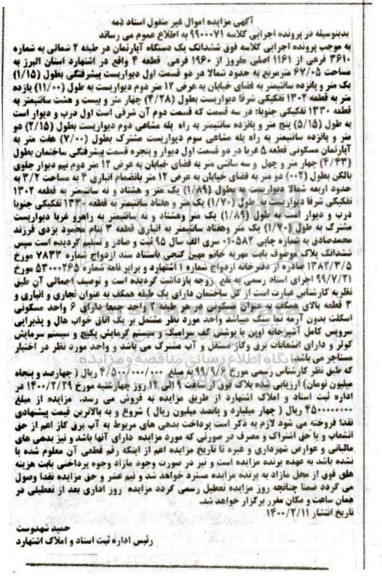 آگهی مزایده اموال غیر منقول اسناد ذمه
بدینوسیله در پرونده اجرایی کلاسه 9900071 به اطلاع عموم می رساند
به موجب پرونده اجرایی کلاسه فوق ششدانگ یک دستگاه آپارتمان در طبقه 2 شمالی به شماره
3610 فرعی از 1161 اصلی مفروز از 1960 فرعی قطعه 4 واقع در اشتهارد استان البرز به
مساحت 67/05 مترمربع به حدود شمالا در دو قسمت اول دیواریست پیشرفتگی بطول (1/15)
یک متر و پانزده سانتیمتر به فضای خیابان به عرض 12 متر دوم دیواریست به طول (11/00) یازده
متر به قطعه 1302 تفکیکی شرقا دیواریست بطول (4/28) چهار متر و بیست و هشت سانتیمتر به
قطعه 1330 تفکیکی جنوبا: در سه قسمت که قسمت دوم آن شرقی است اول درب و دیوار است
به طول (5/15) پنج متر و پانزده سانتیمتر به راه پله مشاعی دوم دیواریست بطول (2/15) دو
متر و پانزده سانتیمتر به راه پله مشاعی سوم دیواریست مشترک بطول (7/00) هفت متر به
آپارتمان مسکونی قطعه 5 غربا در دو قسمت اول دیوار و پنجره قسمت پیشرفتگی ساختمان بطول
(4/33) چهار متر و چهل و سه سانتی متر به فضای خیابان به عرض 12 متر دوم نیم دیوار جلوی
بالکن بطول (002) دو متر به فضای خیابان به عرض 12 متر بانضمام انباری 4 به مساحت 3/2 به
حدود اربعه شمالا دیواریست به طول (1/89) یک متر و هشتاد و نه سانتیمتر به قطعه 1302
تفکیکی شرقا دیواریست به طول (1/70) یک متر و هفتاد سانتیمتر به قطعه 1330 تفکیکی جنوبا
درب و دیوار است به طول (1/89) یک متر وهشتاد و نه سانتیمتر به راهرو غربا دیواریست
مشترک به طول (1/70) یک متر وهفتاد سانتیمتر به انباری قطعه 3 بنام محمود یزدی فرزند
محمدصادق به شماره چاپی 010582 سری الف سال 95 ثبت و صادر و تسلیم گردیده است سپس
ششدانگ پلاک موصوف بابت مهریه خانم مهین گنجی باستناد سند ازدواج شماره 7833 مورخ
1382/3/5 صادره از دفترخانه ازدواج شماره 1 اشتهارد و برابر نامه شماره 53000265 مورخ
99/7/21 اجرای اسناد رسمی به نفع زوجه بازداشت گردیده است و توصیف اجمالی آن طبق
نظریه کارشناس عبارت است از کل ساختمان دارای یک طبقه همکف به عنوان تجاری و انباری و
3 طبقه بالای همکف به عنوان مسکونی و در هر طبقه 2 واحد جمعا دارای 6 واحد مسکونی
اسکلت بدون نما سنگ میباشد واحد مورد نظر مشتمل بر یک اتاق خواب هال و پذیرایی
سرویس کامل آشپزخانه اوپن با پوشش کف سرامیک و سیستم گرمایش پکیج و سیستم سرمایش
کولر و دارای انشعابات برق وگاز مستقل و آب مشترک می باشد و واحد مورد نظر در اختیار
مستاجر می باشد
که طبق نظر کارشناس رسمی مورخ 99/9/6 به مبلغ 4/500/000/000 ریال ( چهارصد و پنجاه
میلیون تومان) ارزیابی شده پلاک فوق از ساعت 9 الی 12 روز چهارشنبه مورخ 1400/2/29 در
اداره ثبت اسناد و املاک اشتهارد از طریق مزایده به فروش می رسد. مزایده از مبلغ
4500000000 ریال ( چهار میلیارد و پانصد میلیون ریال ) شروع و به بالاترین قیمت پیشنهادی
نقدا فروخته می شود لازم به ذکر است پرداخت بدهی های مربوط به آب برق گاز اعم از حق
انشعاب و یا حق اشتراک و مصرف در صورتی که مورد مزایده دارای آنها باشد و نیز بدهی های
مالیاتی و عوارض شهرداری و غیره تا تاریخ مزایده اعم از اینکه رقم قطعی آن معلوم شده یا
نشده باشد به عهده برنده مزایده است و نیز در صورت وجود مازاد وجوه پرداختی بابت هزینه
های فوق از محل مازاد به برنده مزایده مسترد خواهد شد و نیم عشر و حق مزایده نقدا وصول
می گردد ضمنا چنانچه روز مزایده تعطیل رسمی گردد مزایده روز اداری بعد از تعطیلی در
همان ساعت و مکان مقرر برگزار خواهد شد.
تاریخ انتشار 1400/2/11
حمید شهدوست
رئیس اداره ثبت اسناد و املاک اشتهارد